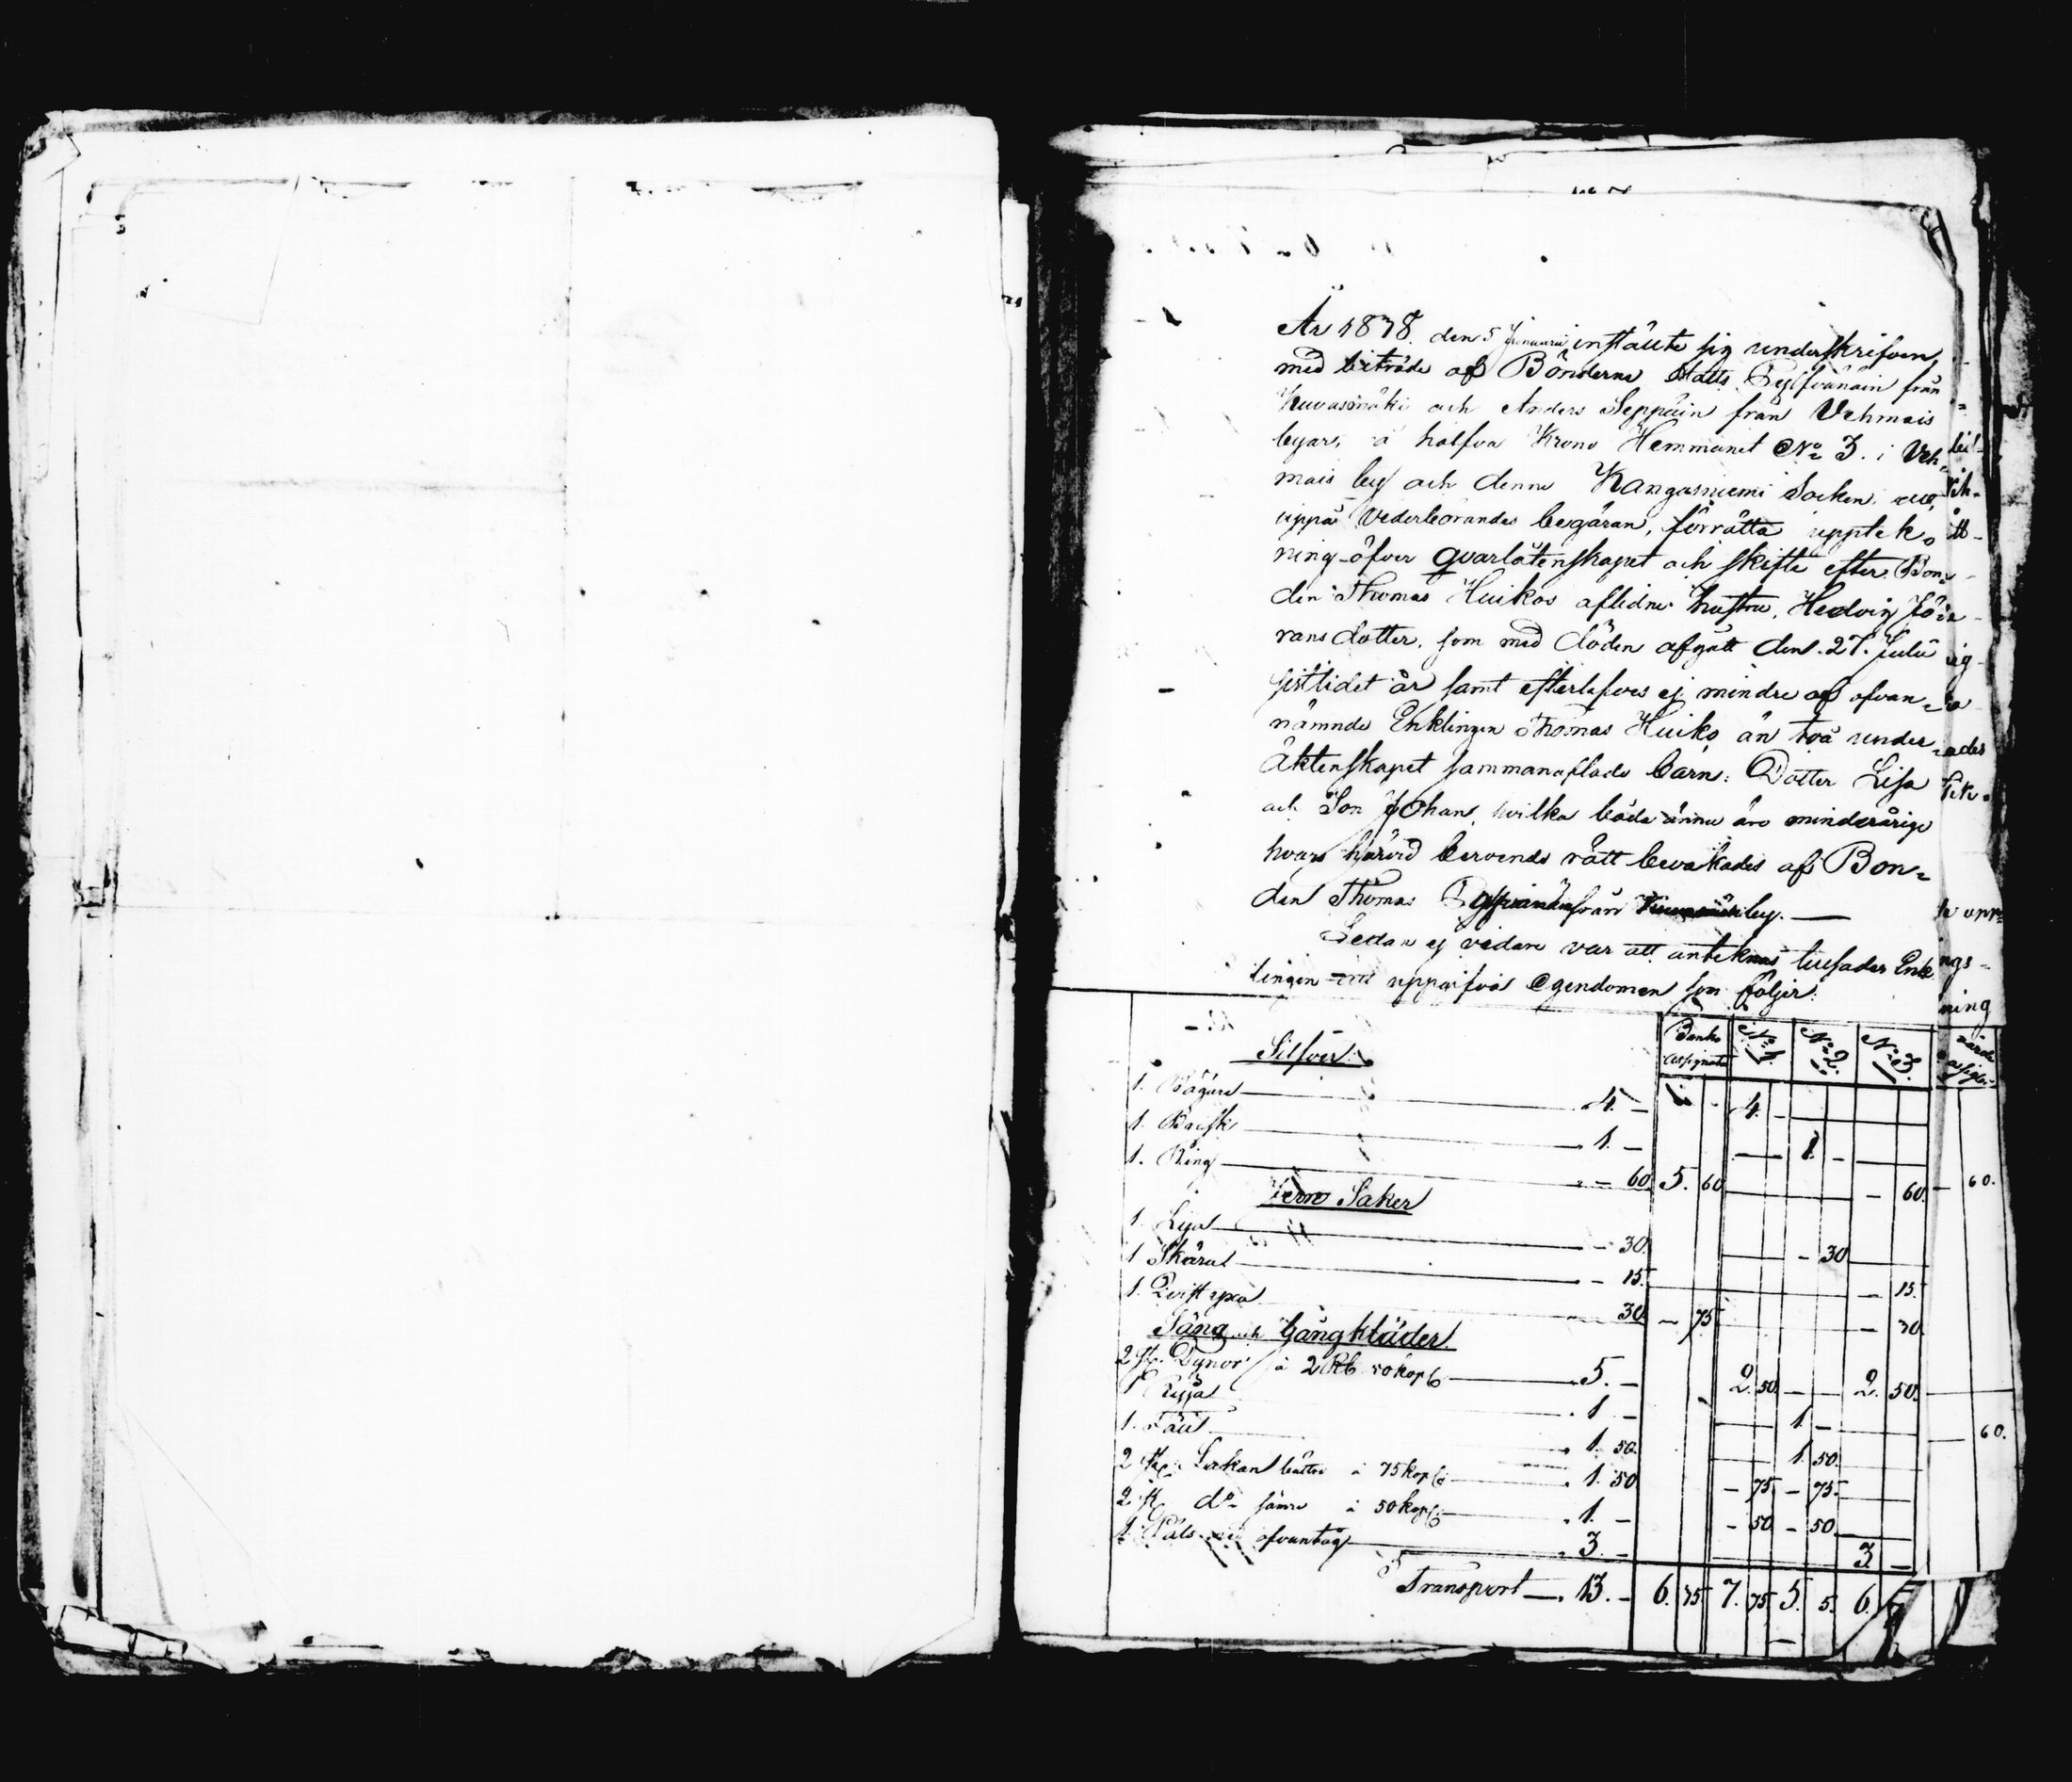 År 1838. den 5 Januarii instälte sig underskrifven
med biträde af Bönderne Matts Pylfvänäin från
Kuvasmäki och Anders Seppäin från Vehmais
byar, å halfva Krono Hemmanet No 3. i Veh-
mais by och denne Kangasniemi Socken, att,
uppå Vederbörandes begäran, förrätta upptek-
ning öfver qvarlåtenskapet och skifte efter Bon-
den Thomas Huikos aflidne hustru, Hedvig Jö-
rans dotter, som med döden afgått den 27. Julii
sistlidet år samt efterlefves ej mindre af ofvan-
nämnde Enklingen Thomas Huiko än två under
äktenskapet sammanaflade barn: Dotter Lisa
och Son Johan, hvilka båda ännu äro minderårige
hvars härvid beroende rätt bevakades af Bon-
den Thomas från by. —
Sedan ej vidare var att anteknas Enk
lingen att uppgifva Egendomen som följer:
Banko Assignat. No 1. No 2. No 3.
Silfver.
1. Bägare — 4. — 4. —
1. Brisk — 1. — 1. —
1. Ring — 60. 5. 60 — 60. — 60.
Jern Saker
1. Lija — 30. — 30
1 Skära — 15. — 15.
1. Qvist yxa 30. — 75. — 30.
Säng och Gångkläder.
2 st. Dynor à 2 Rb. 50 kop. — 5. — 2. 50. — 2. 50.
1 Ryja — 1 — 1. — — 60.
1. Fäll — 1. 50. 1. 50.
2 st. Lakan bättre à 75 kop. — 1. 50 — 75. — 75.
2 st do sämre à 50 kop. — 1. — — 50 — 50.
1. Päls med ofvantyg — 3. — 3. —
Transport — 13. — 6. 75. 7. 75. 5. 5. 6.